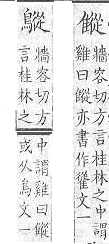 牆容切方言桂林之中謂
雞曰亦書作文一
牆容切方
言桂林之
中謂雞曰
或从鳥文一